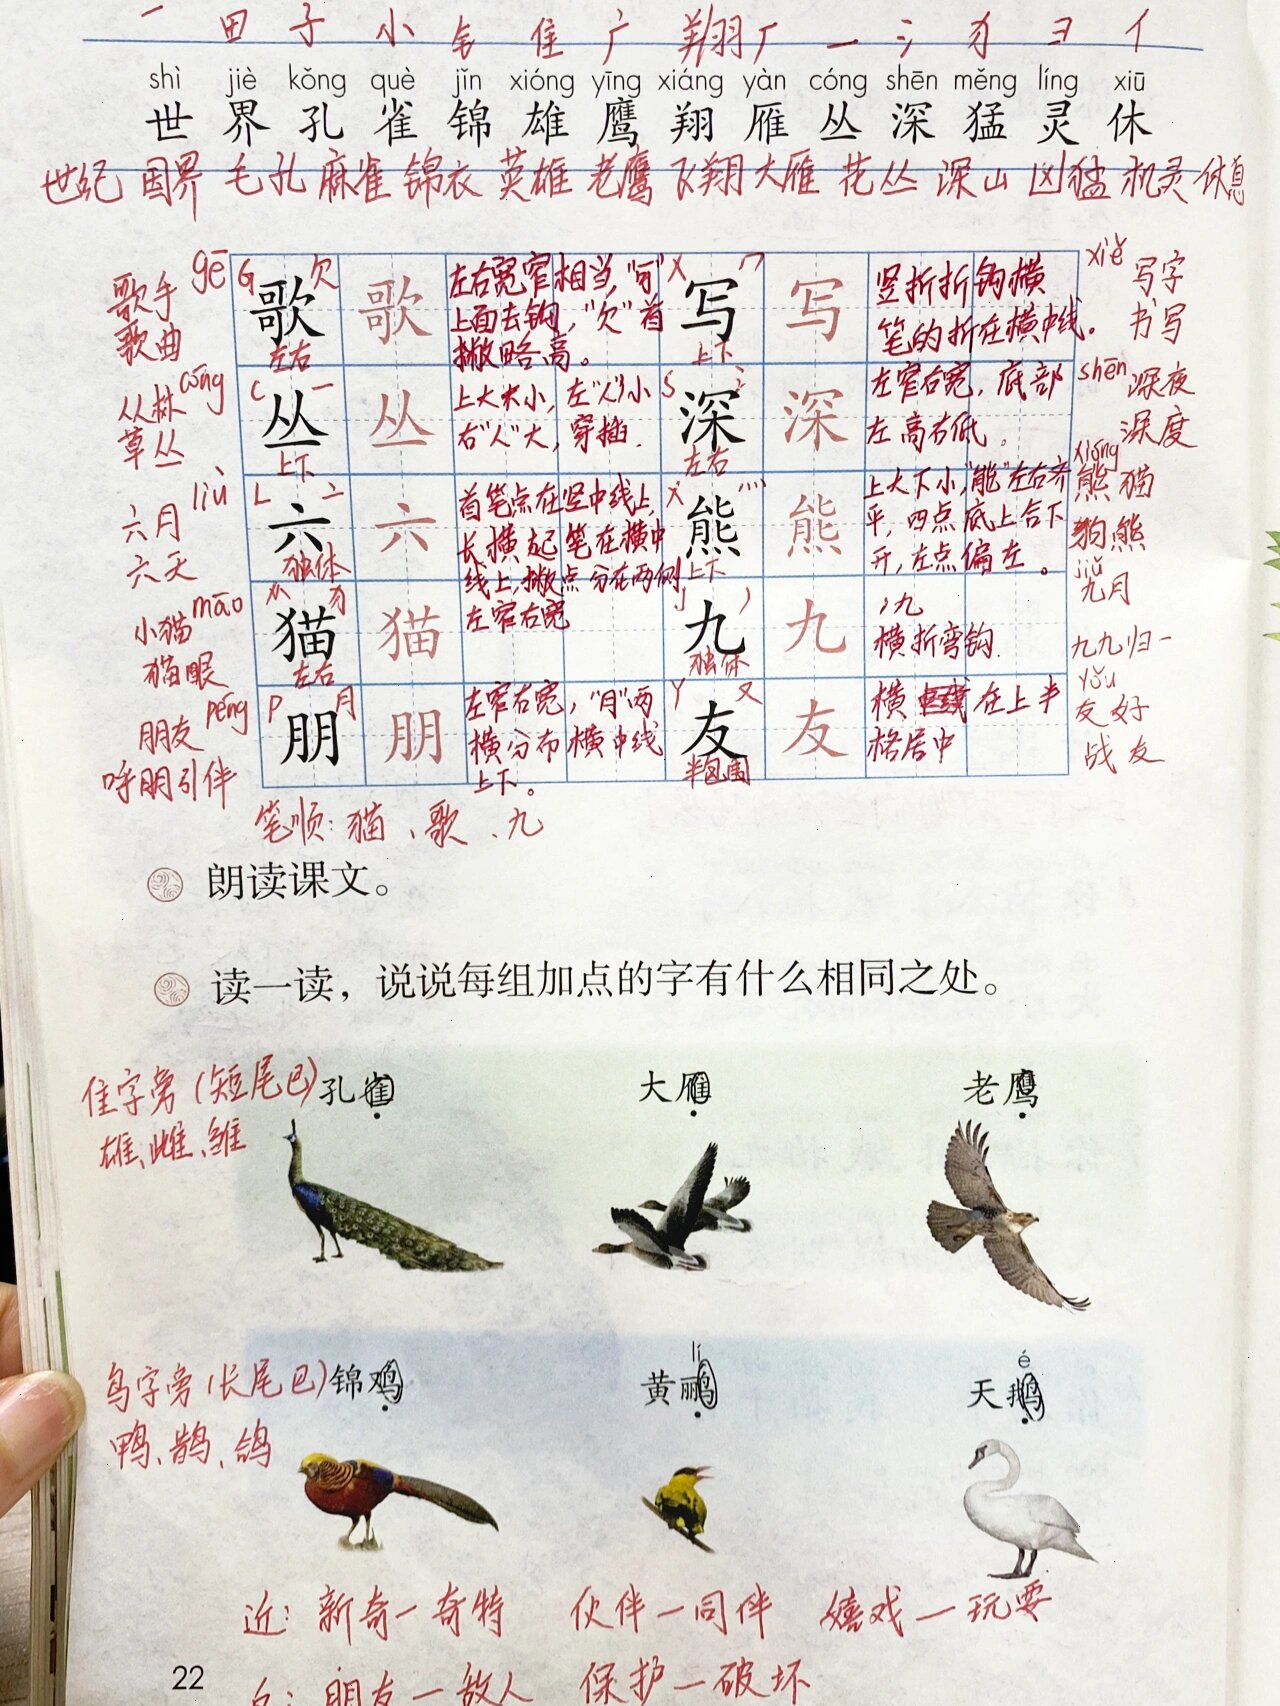 一 田 子 小 钅 隹 广 翔 厂 一 氵 犭 彐 亻
shì jiè kǒng què jǐn xióng yīng xiáng yàn cóng shēn měng líng xiū
世 界 孔 雀 锦 雄 鹰 翔 雁 丛 深 猛 灵 休
世纪 国界 毛孔 麻雀 锦衣 英雄 老鹰 飞翔 大雁 花丛 深山 凶猛 机灵 休息
gē
歌手
歌曲
G 欠
歌 歌
左右
左右宽窄相当,“哥”
上面去钩,“欠”首
撇略高。
X 冖
写 写
上下
竖折折钩横
笔的折在横中线。
xiě
写字
书写
cóng
丛林
草丛
C 一
丛 丛
上下
上大小,左“人”小
右“人”大,穿插.
S 氵
深 深
左右
左窄右宽,底部
左高右低。
shēn
深夜
深度
liù
六月
六天
L 亠
六 六
独体
首笔点在竖中线上,
长横起笔在横中
线上,撇点分在两侧
X 灬
熊 熊
上下
上大下小,“能”左右齐
平,四点底上合下
开,左点偏左。
xióng
熊猫
狗熊
māo
小猫
猫眼
M 犭
猫 猫
左右
左窄右宽
J 丿
九 九
独体
丿九
横折弯钩.
jiǔ
九月
九九归一
péng
朋友
呼朋引伴
P 月
朋 朋
左窄右宽,“月”两
横分布横中线
上下。
Y 又
友 友
半包围
横在上半
格居中
yǒu
友好
战友
笔顺:猫、歌、九
朗读课文。
读一读，说说每组加点的字有什么相同之处。
隹字旁(短尾巴)
雄、雌、雏
孔雀 大雁 老鹰
鸟字旁(长尾巴)
鸭、鹊、鸽
lí é
锦鸡 黄鹂 天鹅
近:新奇—奇特 伙伴—同伴 嬉戏—玩耍
朋友—敌人 保护—破坏
22